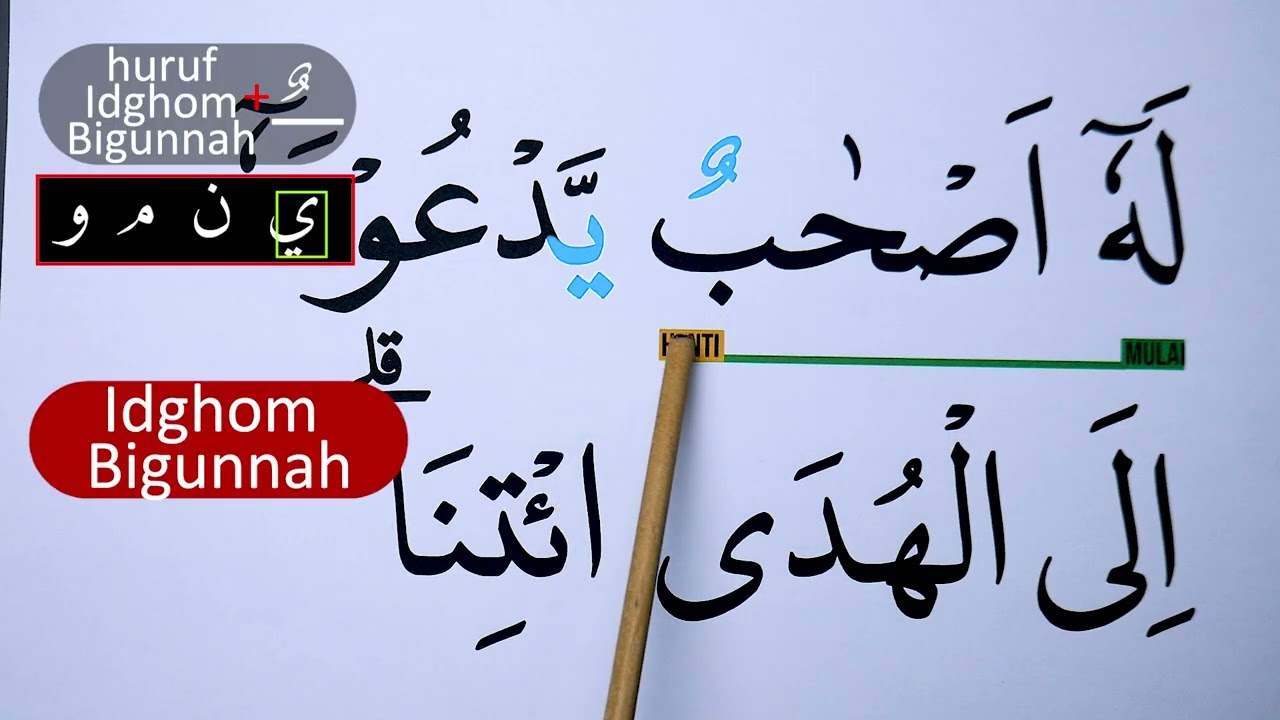 huruf
Idghom + ـٌ
Bigunnah
ي ن م و
لَهٗٓ اَصْحٰبٌ يَّدْعُوْ
HENTI MULAI
قلے
Idghom
Bigunnah
اِلَى الْهُدَى ائْتِنَا